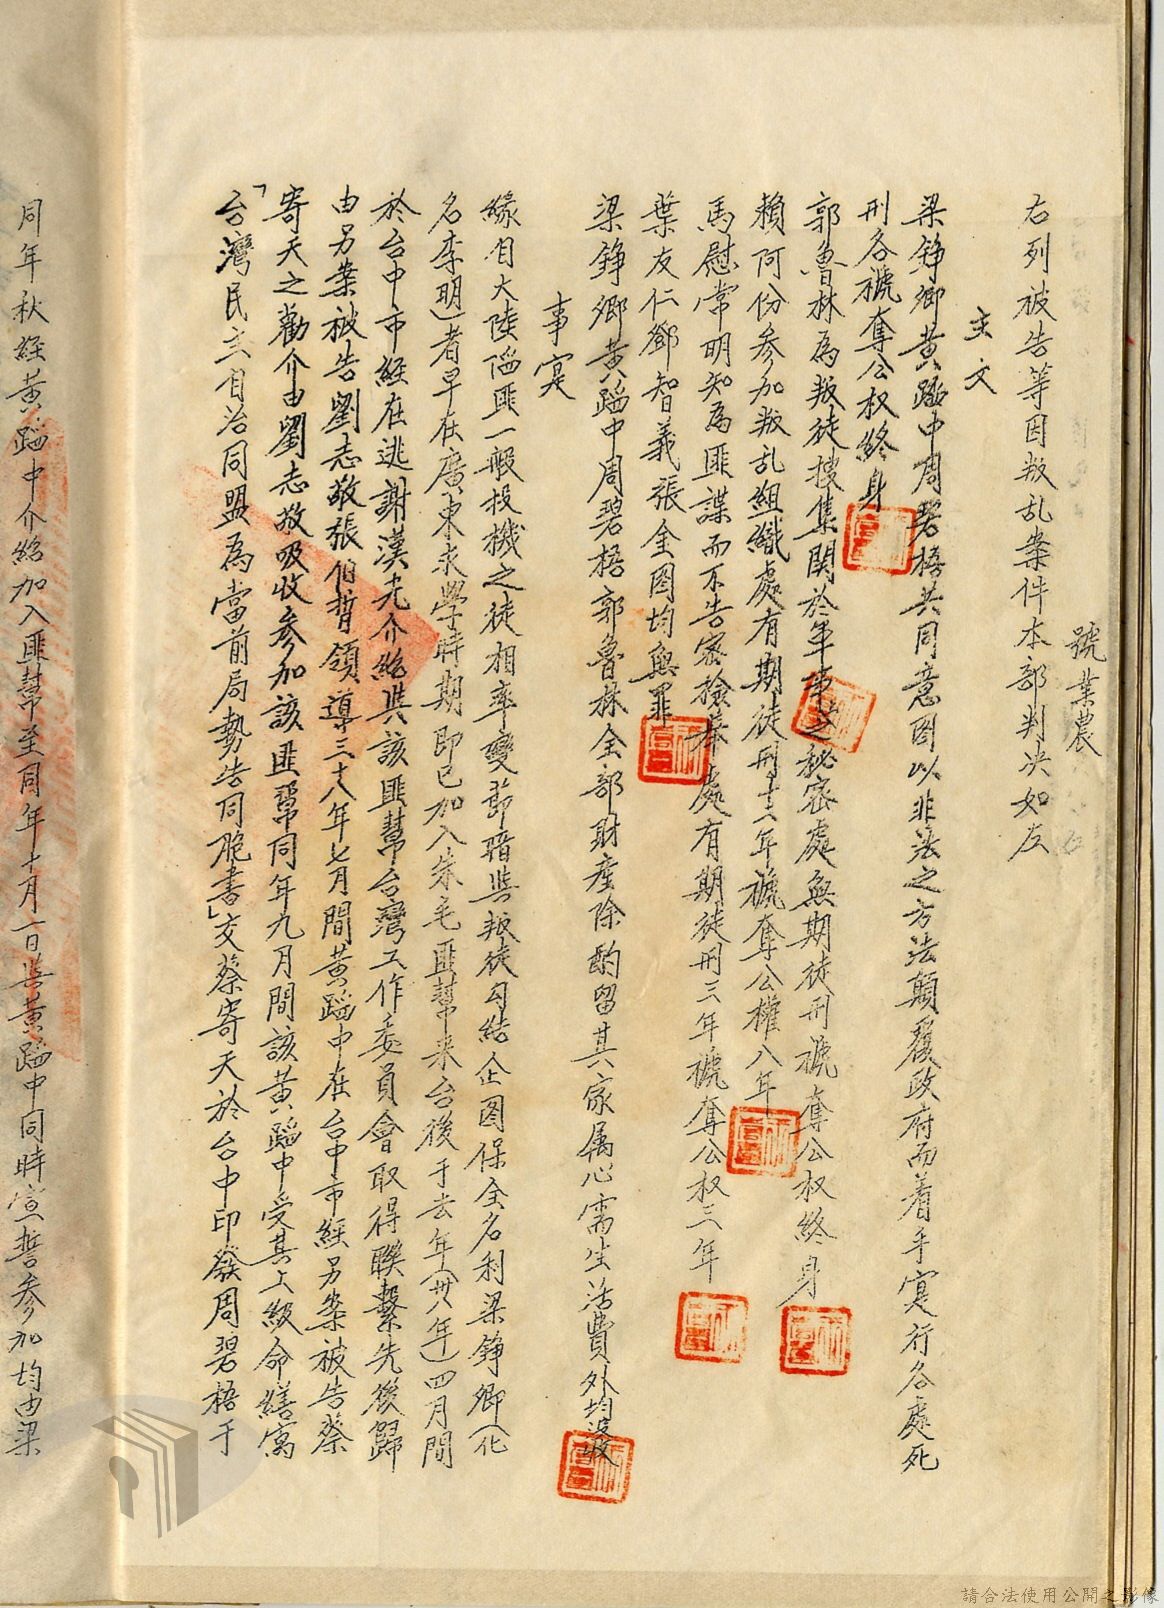 號業農
右列被告等因叛乱案件本部判决如左
主文
梁錚卿黃蹈中周碧梧共同意图以非法之方法顛覆政府而着手实行各處死
刑各褫奪公权終身
郭魯林為叛徒搜集関於軍事上之秘密處無期徒刑褫奪公权終身
賴阿份参加叛乱組織處有期徒刑十二年褫奪公權八年
馬慰常明知為匪諜而不告密檢舉處有期徒刑三年褫奪公权三年
葉友仁鄧智義張全图均無罪
梁錚卿黃蹈中周碧梧郭魯林全部財產除酌留其家属必需生活費外均没收
事实
緣自大陸陷匪一般投機之徒相率變節暗與叛徒勾結企图保全名利梁錚卿(化
名李明)者早在廣東求學時期即已加入朱毛匪幫来台後于去年(卅八年)四月間
於台中市經在逃謝漢光介紹與該匪幫台灣工作委員會取得聯繫先後歸
由另案被告劉志敬張伯哲領導三十八年七月間黃蹈中在台中市經另案被告蔡
寄天之勸介由劉志敬吸收参加該匪幫同年九月間該黃蹈中受其上級命繕寫
「台灣民主自治同盟為當前局勢告同胞書」交蔡寄天於台中印發周碧梧于
同年秋經黃蹈中介紹加入匪幫至同年十月一日與黃蹈中同時宣誓参加均由梁
請合法使用公開之影像